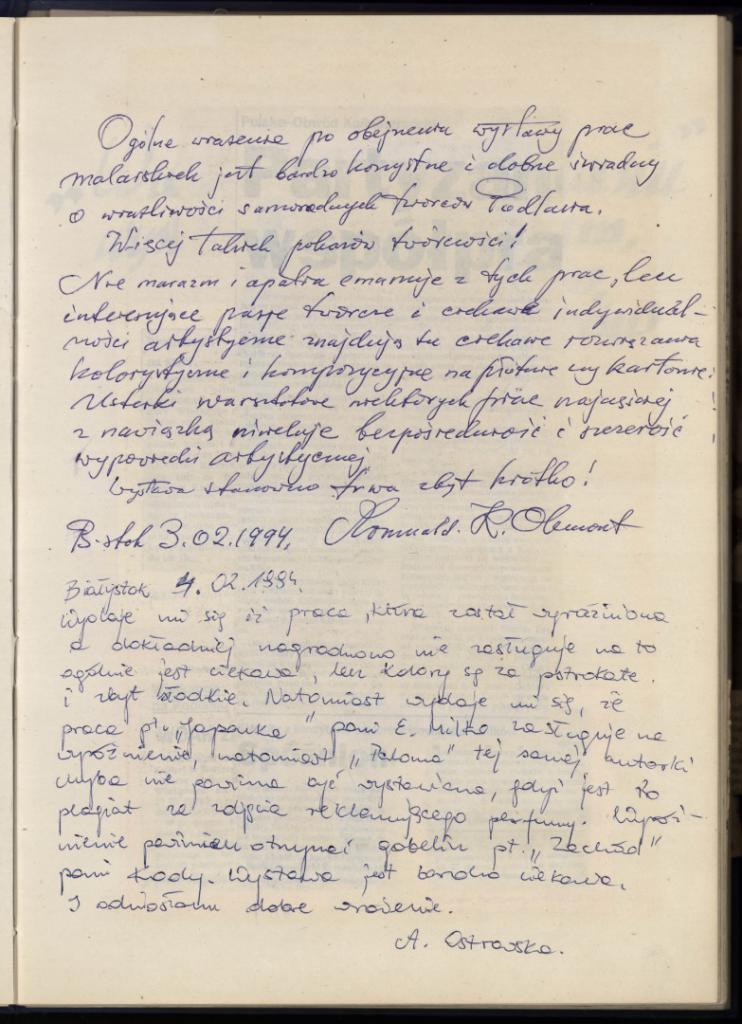 Ogólne wrażenie po obejrzeniu wystawy prac
malarskich jest bardzo korzystne i dobrze świadczy
o wrażliwości samorodnych twórców Podlasia.
Więcej takich pokazów twórczości!
Nie marazm i apatia emanuje z tych prac, lecz
interesujące pasje twórcze i ciekawe indywidual-
ności artystyczne znajdują tu ciekawe rozwiązania
kolorystyczne i kompozycyjne na płótnie czy kartonie.
Usterki warsztatowe niektórych prac najczęściej
z nawiązką niweluje bezpośredniość i szczerość
wypowiedzi artystycznej
Wystawa stanowczo trwa zbyt krótko!
B-stok 3.02.1994. Romuald K.
Białystok 4.02.1994.
Wydaje mi się iż praca, która został wyróżniona
a dokładniej nagrodzono nie zasługuje na to
ogólnie jest ciekawa, lecz kolory są za pstrokate
i zbyt słodkie. Natomiast wydaje mi się, że
praca pt. „Japonka" pani E. Milko zasługuje na
wyróżnienie, natomiast „Paloma" tej samej autorki
chyba nie powinna być wystawiana, gdyż jest to
plagiat ze zdjęcia reklamującego perfumy. Wyróż-
nienie powinien otrzymać gobelin pt. „Zachód"
pani Kody. Wystawa jest bardzo ciekawa,
I odniosłam dobre wrażenie.
A. Ostrowska.